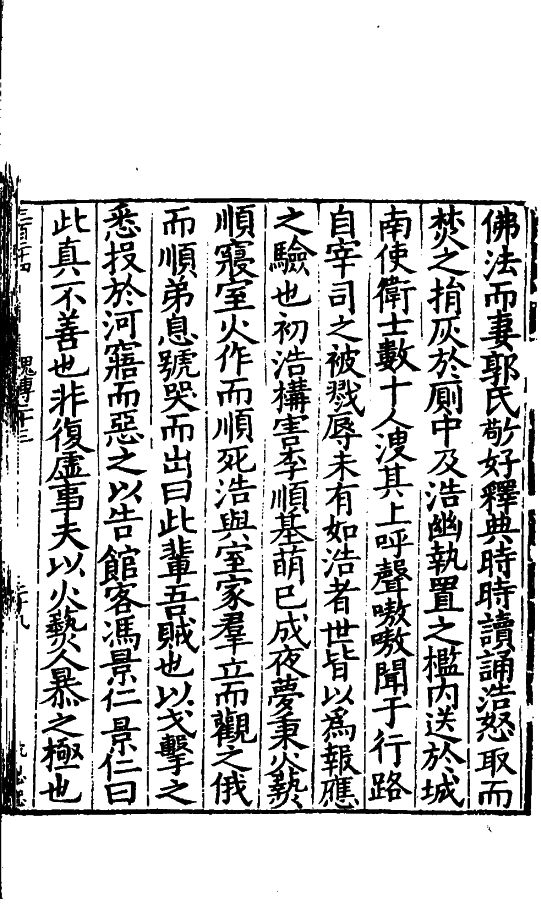 佛法而妻郭氏敬好釋典時時讀誦浩怒取而
焚之捐灰於厠中及浩幽執置之檻內送於城
南使衛士數十人溲其上呼聲嗷嗷聞于行路
自宰司之被戮辱未有如浩者世皆以爲報應
之驗也初浩構害李順基萌已成夜夢秉火爇
順寢室火作而順死浩與室家羣立而觀之俄
而順弟息號哭而出曰此輩吾賊也以戈擊之
悉投於河寤而惡之以告館客馮景仁景仁曰
此真不善也非復虛事夫以火爇人暴之極也